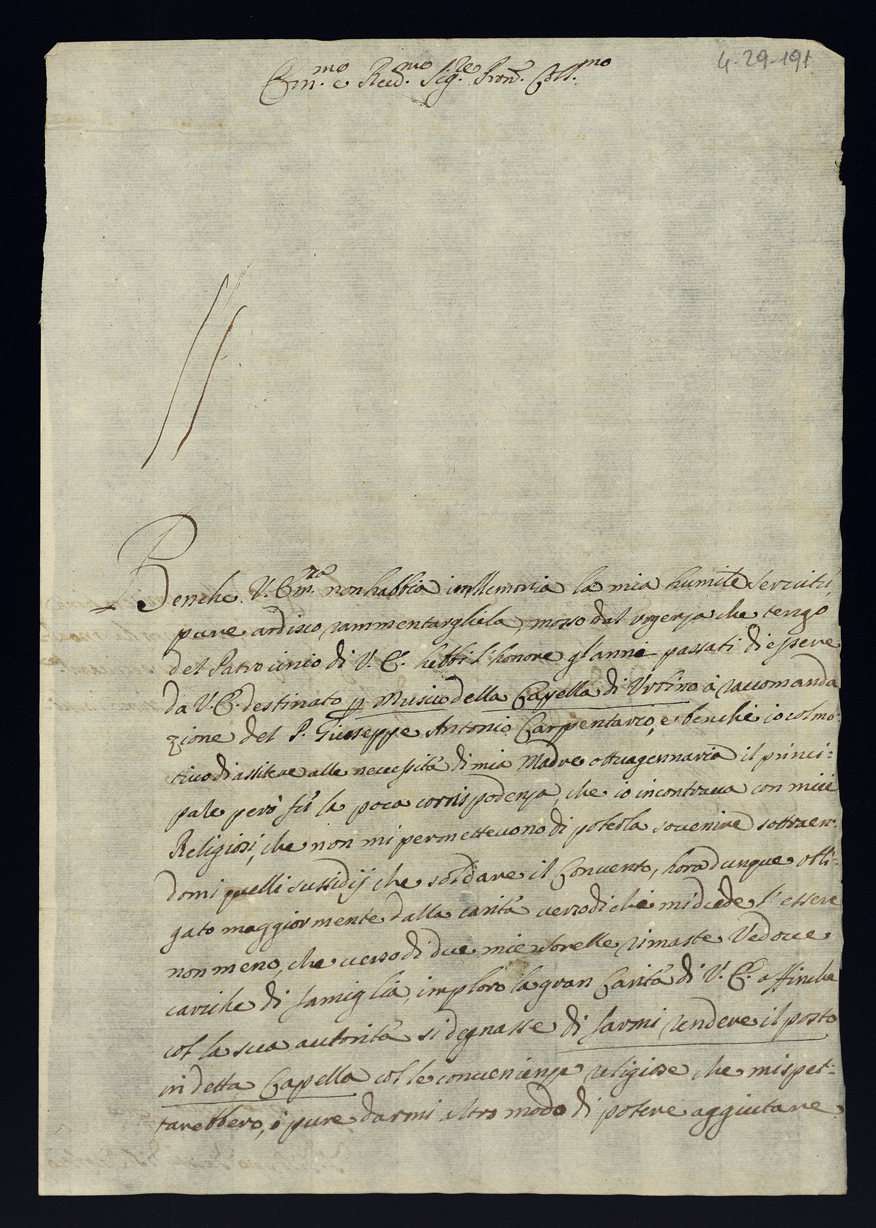 4-29-191
Em.mo e Red.mo Sig.re Pron. Coll.mo
Benche V. Em.za non habbia in Memoria la mia humile servitù,
pure ardisco, rammentargliela, mosso dal urgenza che tengo
del Patrocinio di V. E. hebbi l'honore gl'anni passati di essere
da V. E. destinato p Musico della Capella di Urbino à raccomanda
zione del P. Giuseppe Antonio Carpentario, e benche io col mo-
tivo di assitere alle necessità di mia Madre ottuagennaria il princi-
pale però fù la poca corrispodenza, che io incontrava con miei
Religiosi, che non mi permettevono di poterla sovenire sottraen-
domi quelli sussidij che sol dare il Convento, hora dunque obli-
gato maggiormente dalla carità verso di chi mi diede l'essere
non meno, che verso di due mie sorelle rimaste Vedove
cariche di famiglia, imploro la gran Carità di V. E. affinche
col la sua autorità si degnasse di farmi rendere il posto
in detta Capella col le convenienze religiose che mi spet-
tarebbero, ò pure darmi altro modo di potere aggiutare